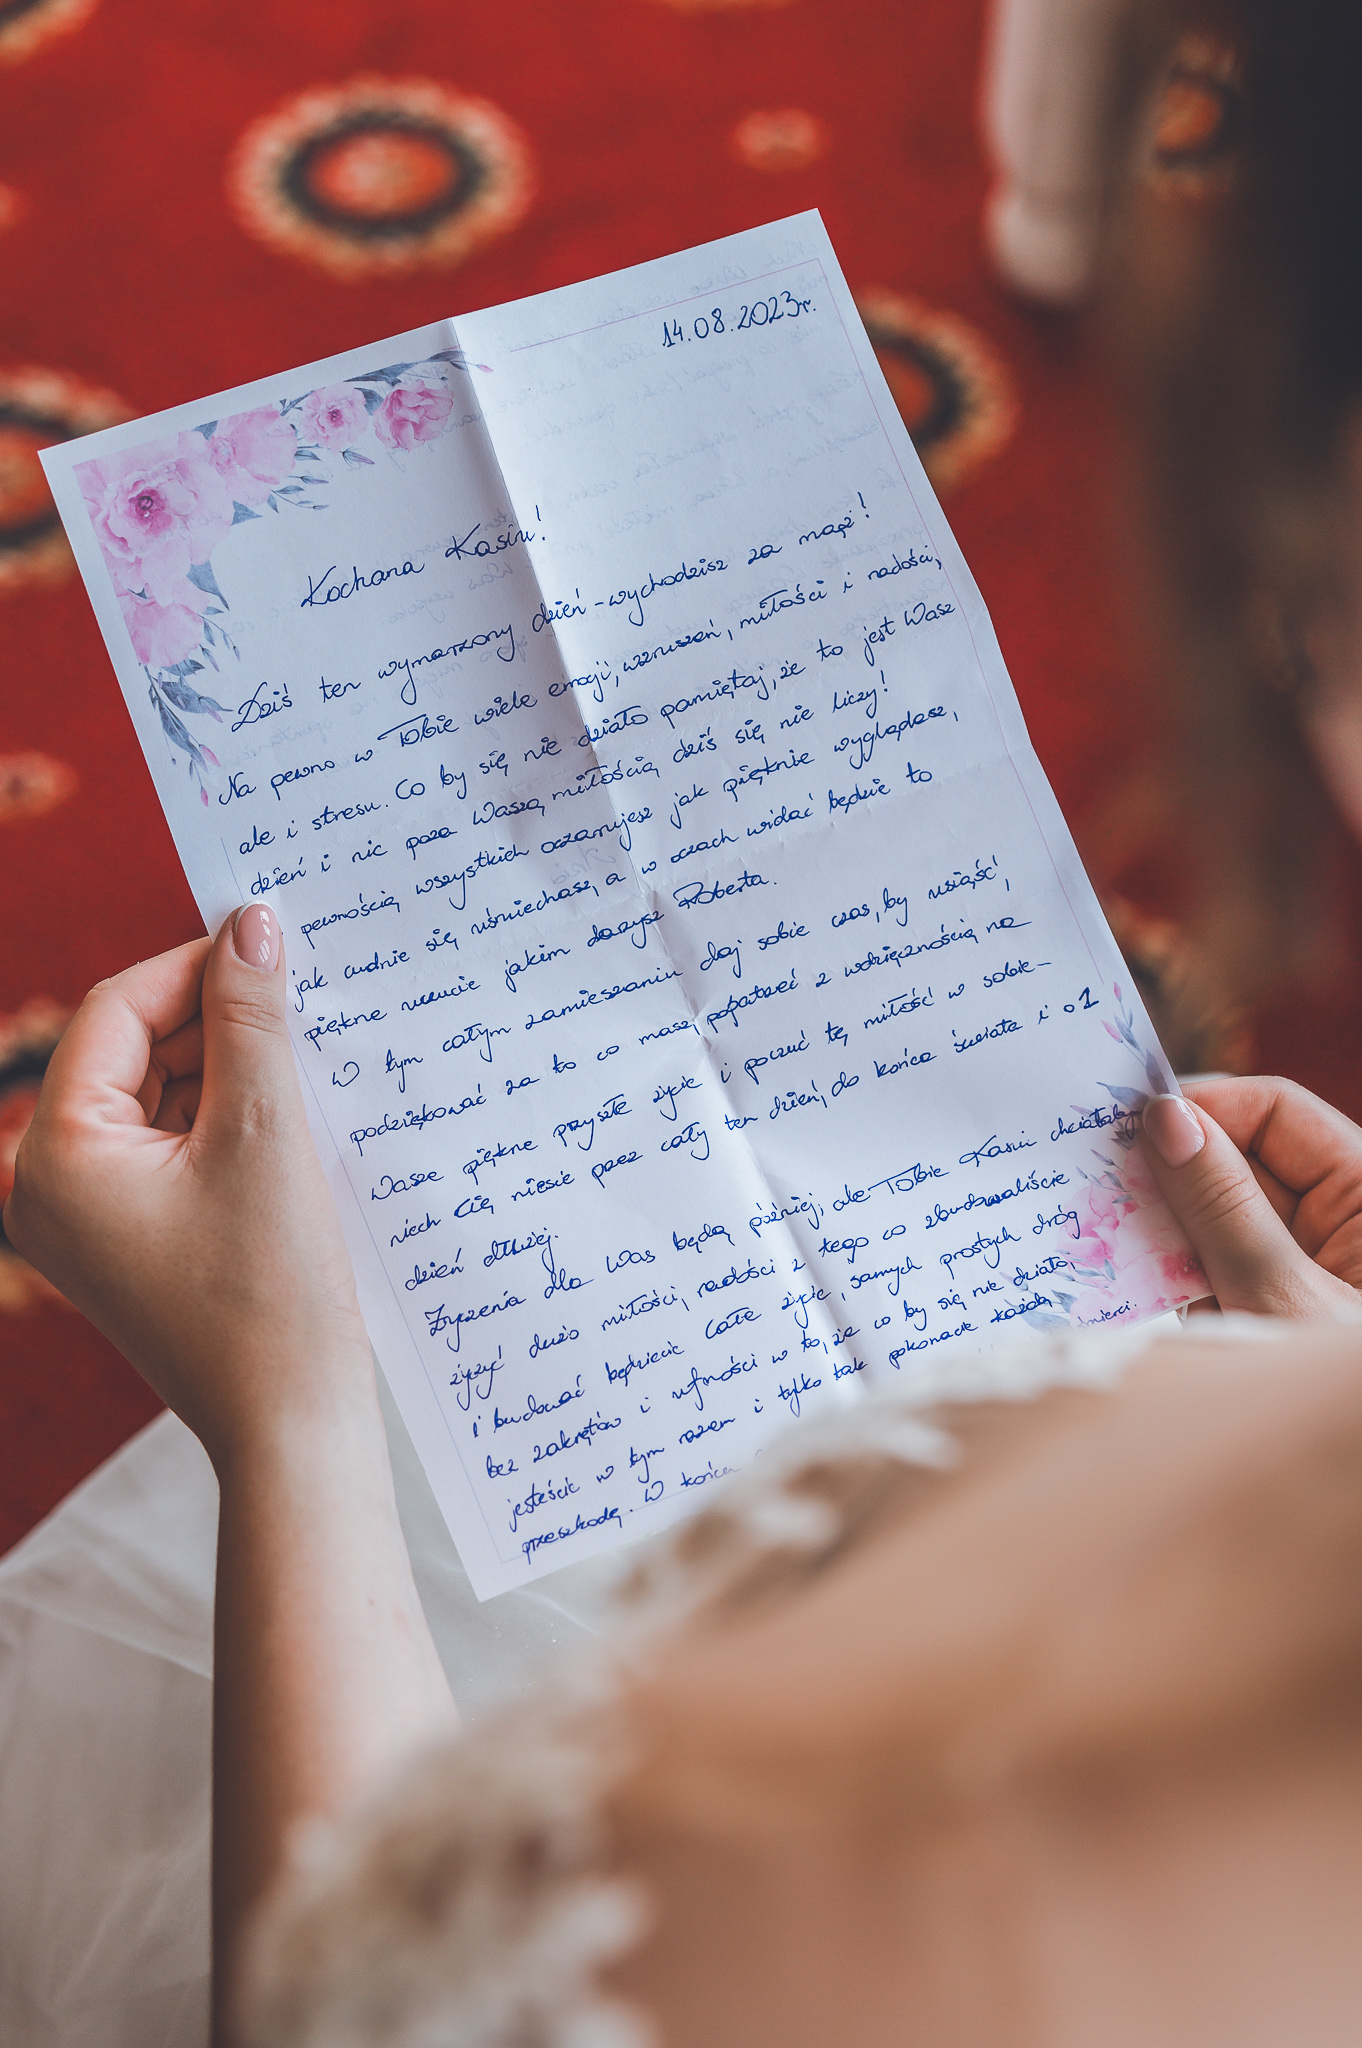 14.08.2023r.
Kochana Kasiu!
Dziś ten wymarzony dzień - wychodzisz za mąż!
Na pewno w Tobie wiele emocji, wzruszeń, miłości i radości,
ale i stresu. Co by się nie działo pamiętaj, że to jest Wasz
dzień i nic poza Waszą miłością dziś się nie liczy!
pewnością wszystkich oczarujesz jak pięknie wyglądasz,
jak cudnie się uśmiechasz, a w oczach widać będzie to
piękne uczucie jakim darzysz Roberta.
W tym całym zamieszaniu daj sobie czas, by usiąść,
podziękować za to co masz, popatrzeć z wdzięcznością na
Wasze piękne przyszłe życie i poczuć tę miłość w sobie -
niech Cię niesie przez cały ten dzień, do końca świata i o 1
dzień dłużej.
Życzenia dla Was będą później, ale Tobie Kasiu chciałaby
życzyć dużo miłości, radości z tego co zbudowaliście
i budować będziecie całe życie, samych prostych dróg
bez zakrętów i ufności w to, że co by się nie działo,
jesteście w tym razem i tylko tak pokonacie każdą
przeszkodę. W końcu
śmierci.